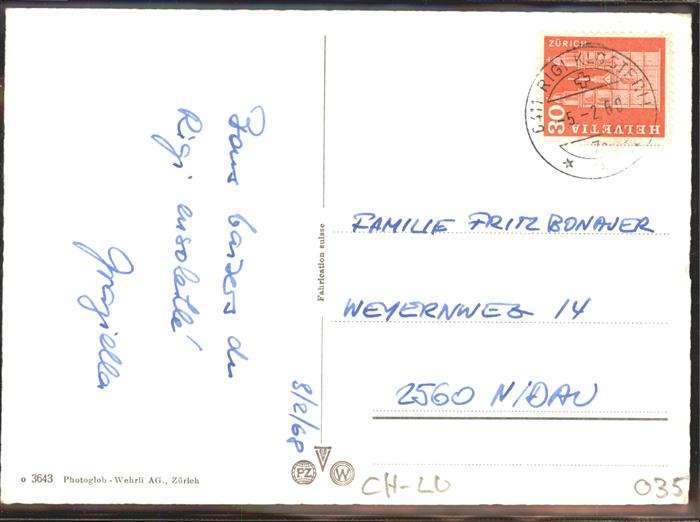 Bons baisers du
Rigi ensoleillé
Graziella
8/2/68
Fabrication suisse
ZÜRICH
30
HELVETIA
6411 RIGI KLÖSTERLI
-5.-2.68
FAMILIE FRITZ BONAUER
WEYERNWEG 14
2560 NIDAU
o 3643 Photoglob-Wehrli AG., Zürich
PZ
W
CH-LU
035